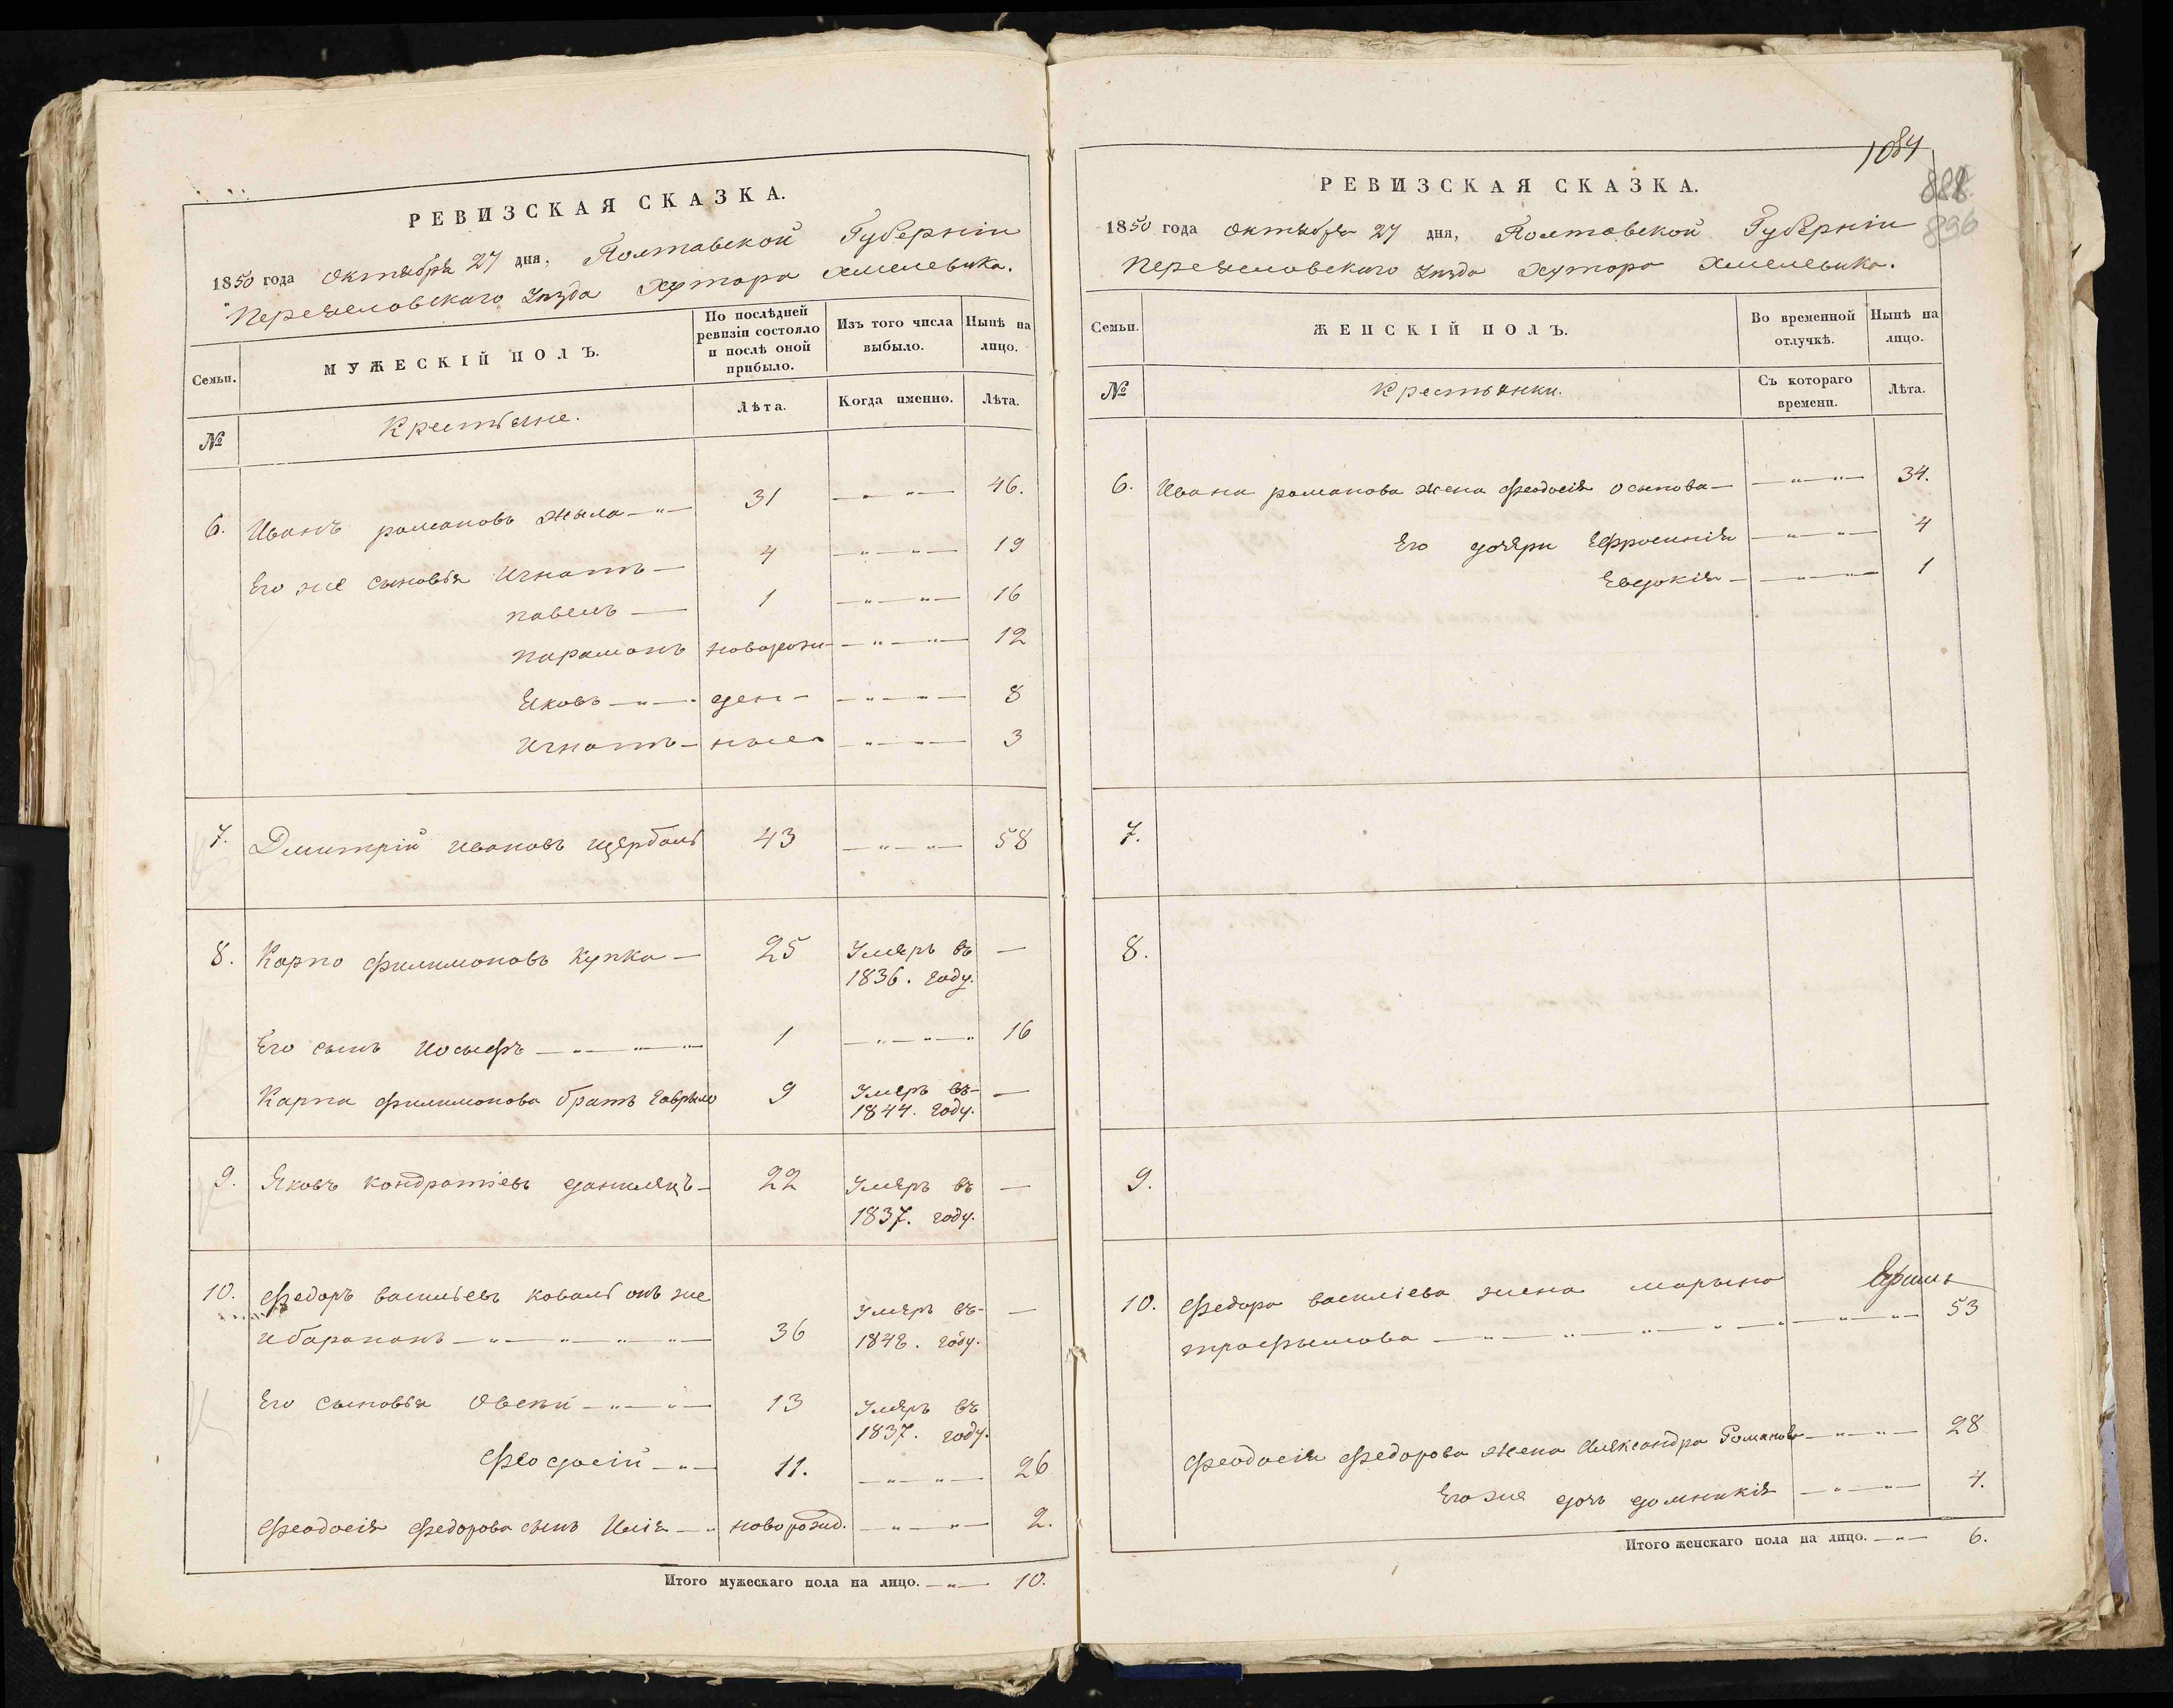 РЕВИЗСКАЯ СКАЗКА.
1850 года Октября 27 дня, Полтавской Губерніи
Переяславскаго Уѣзда Хутора Хмелевика.
Семьи. МУЖЕСКІЙ ПОЛЪ. По послѣдней ревизіи состояло и послѣ оной прибыло. Изъ того числа выбыло. Нынѣ на лицо.
№ Крестьяне. Лѣта. Когда именно. Лѣта.
6. Иванъ романовъ Жыла 31 46.
Его же сыновья Игнатъ 4 19
павелъ 1 16
парамонъ новорож- 12
Яковъ ден- 8
Игнатъ ные 3
7. Дмитрій ивановъ щербань 43 58
8. Карпо филимоновъ купка 25 Умеръ въ 1836. году. —
Его сынъ Иосыфъ 1 16
Карпа филимонова братъ гаврыло 9 Умеръ въ 1844. году. —
9. Яковъ кондратіевъ данилецъ 22 Умеръ въ 1837. году. —
10. Федоръ васильевъ коваль онъ же
ибаранонъ 36 Умеръ въ 1848. году. —
Его сыновья Овсѣй 13 Умеръ въ 1837. году.
Феодосій 11. 26
Феодосія федорова сынъ Илія новорожд. 2.
Итого мужескаго пола на лицо. 10.
1084
888
896
РЕВИЗСКАЯ СКАЗКА.
1850 года Октября 27 дня, Полтавской Губерніи
Переяславскаго Уѣзда Хутора Хмелевика.
Семьи. ЖЕНСКІЙ ПОЛЪ. Во временной отлучкѣ. Нынѣ на лицо.
№ Крестьянки. Съ котораго времени. Лѣта.
6. Ивана романова жена феодосія осипова 34.
Его дочери Ефросинія 4
Евдокія 1
7.
8.
9.
10. Федора василіева жена марына
трофымова 53
Феодосія федорова жена Александра Романова 28
Его же дочь домникія 4.
Итого женскаго пола на лицо. 6.